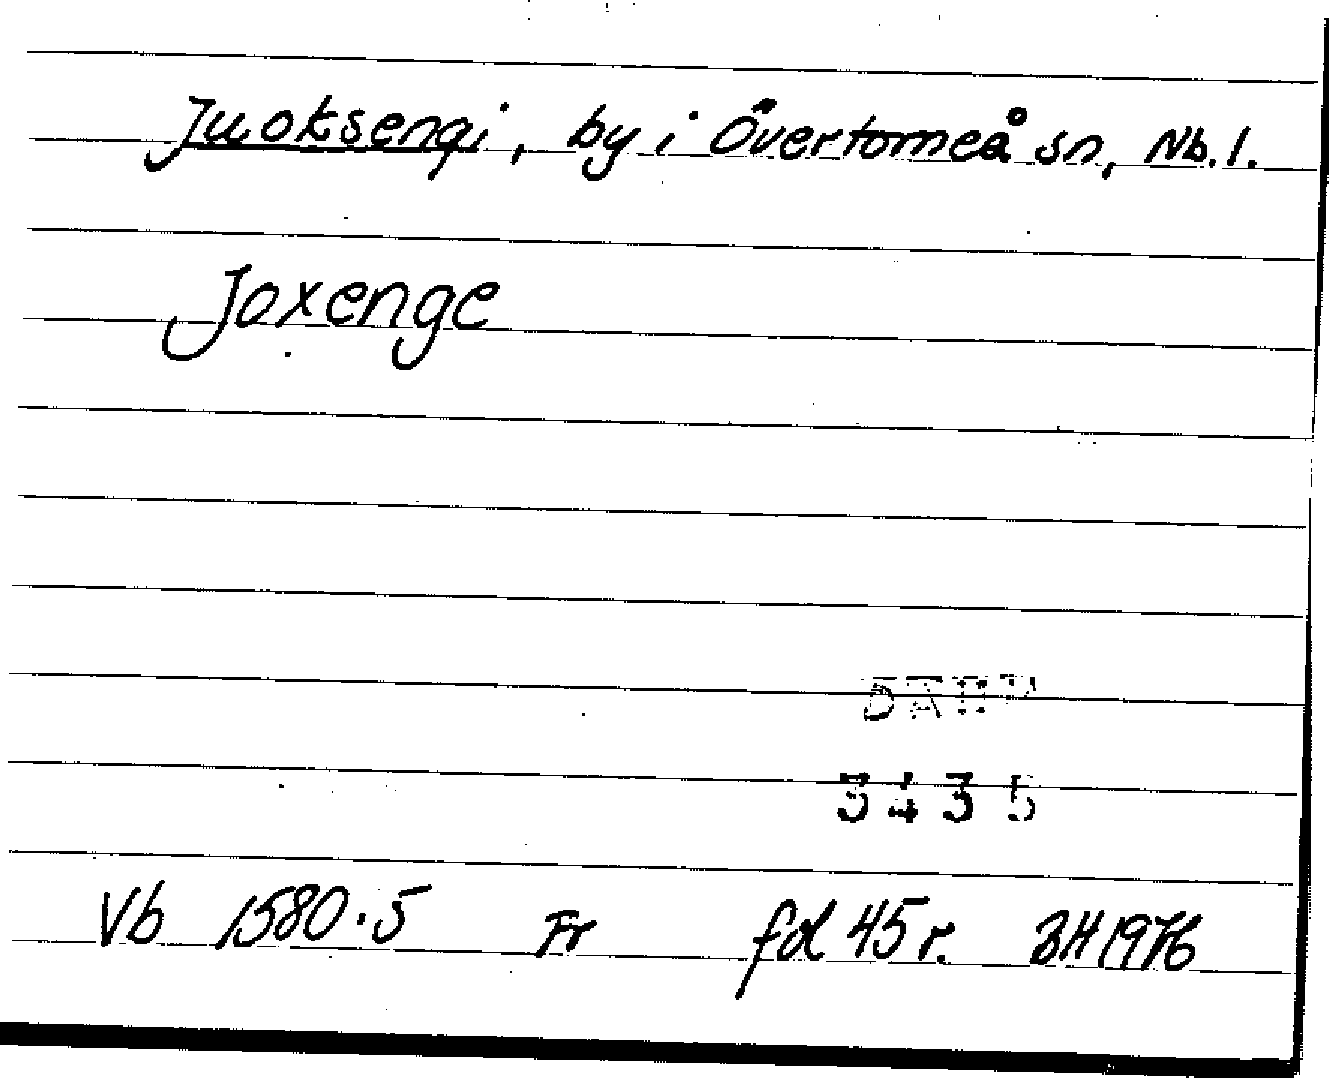 Juoksengi, by i Övertorneå sn, Nb. l.
Joxenge
DAUM
3435
Vb 1580·5 Fr fol 45 r. BH 1976